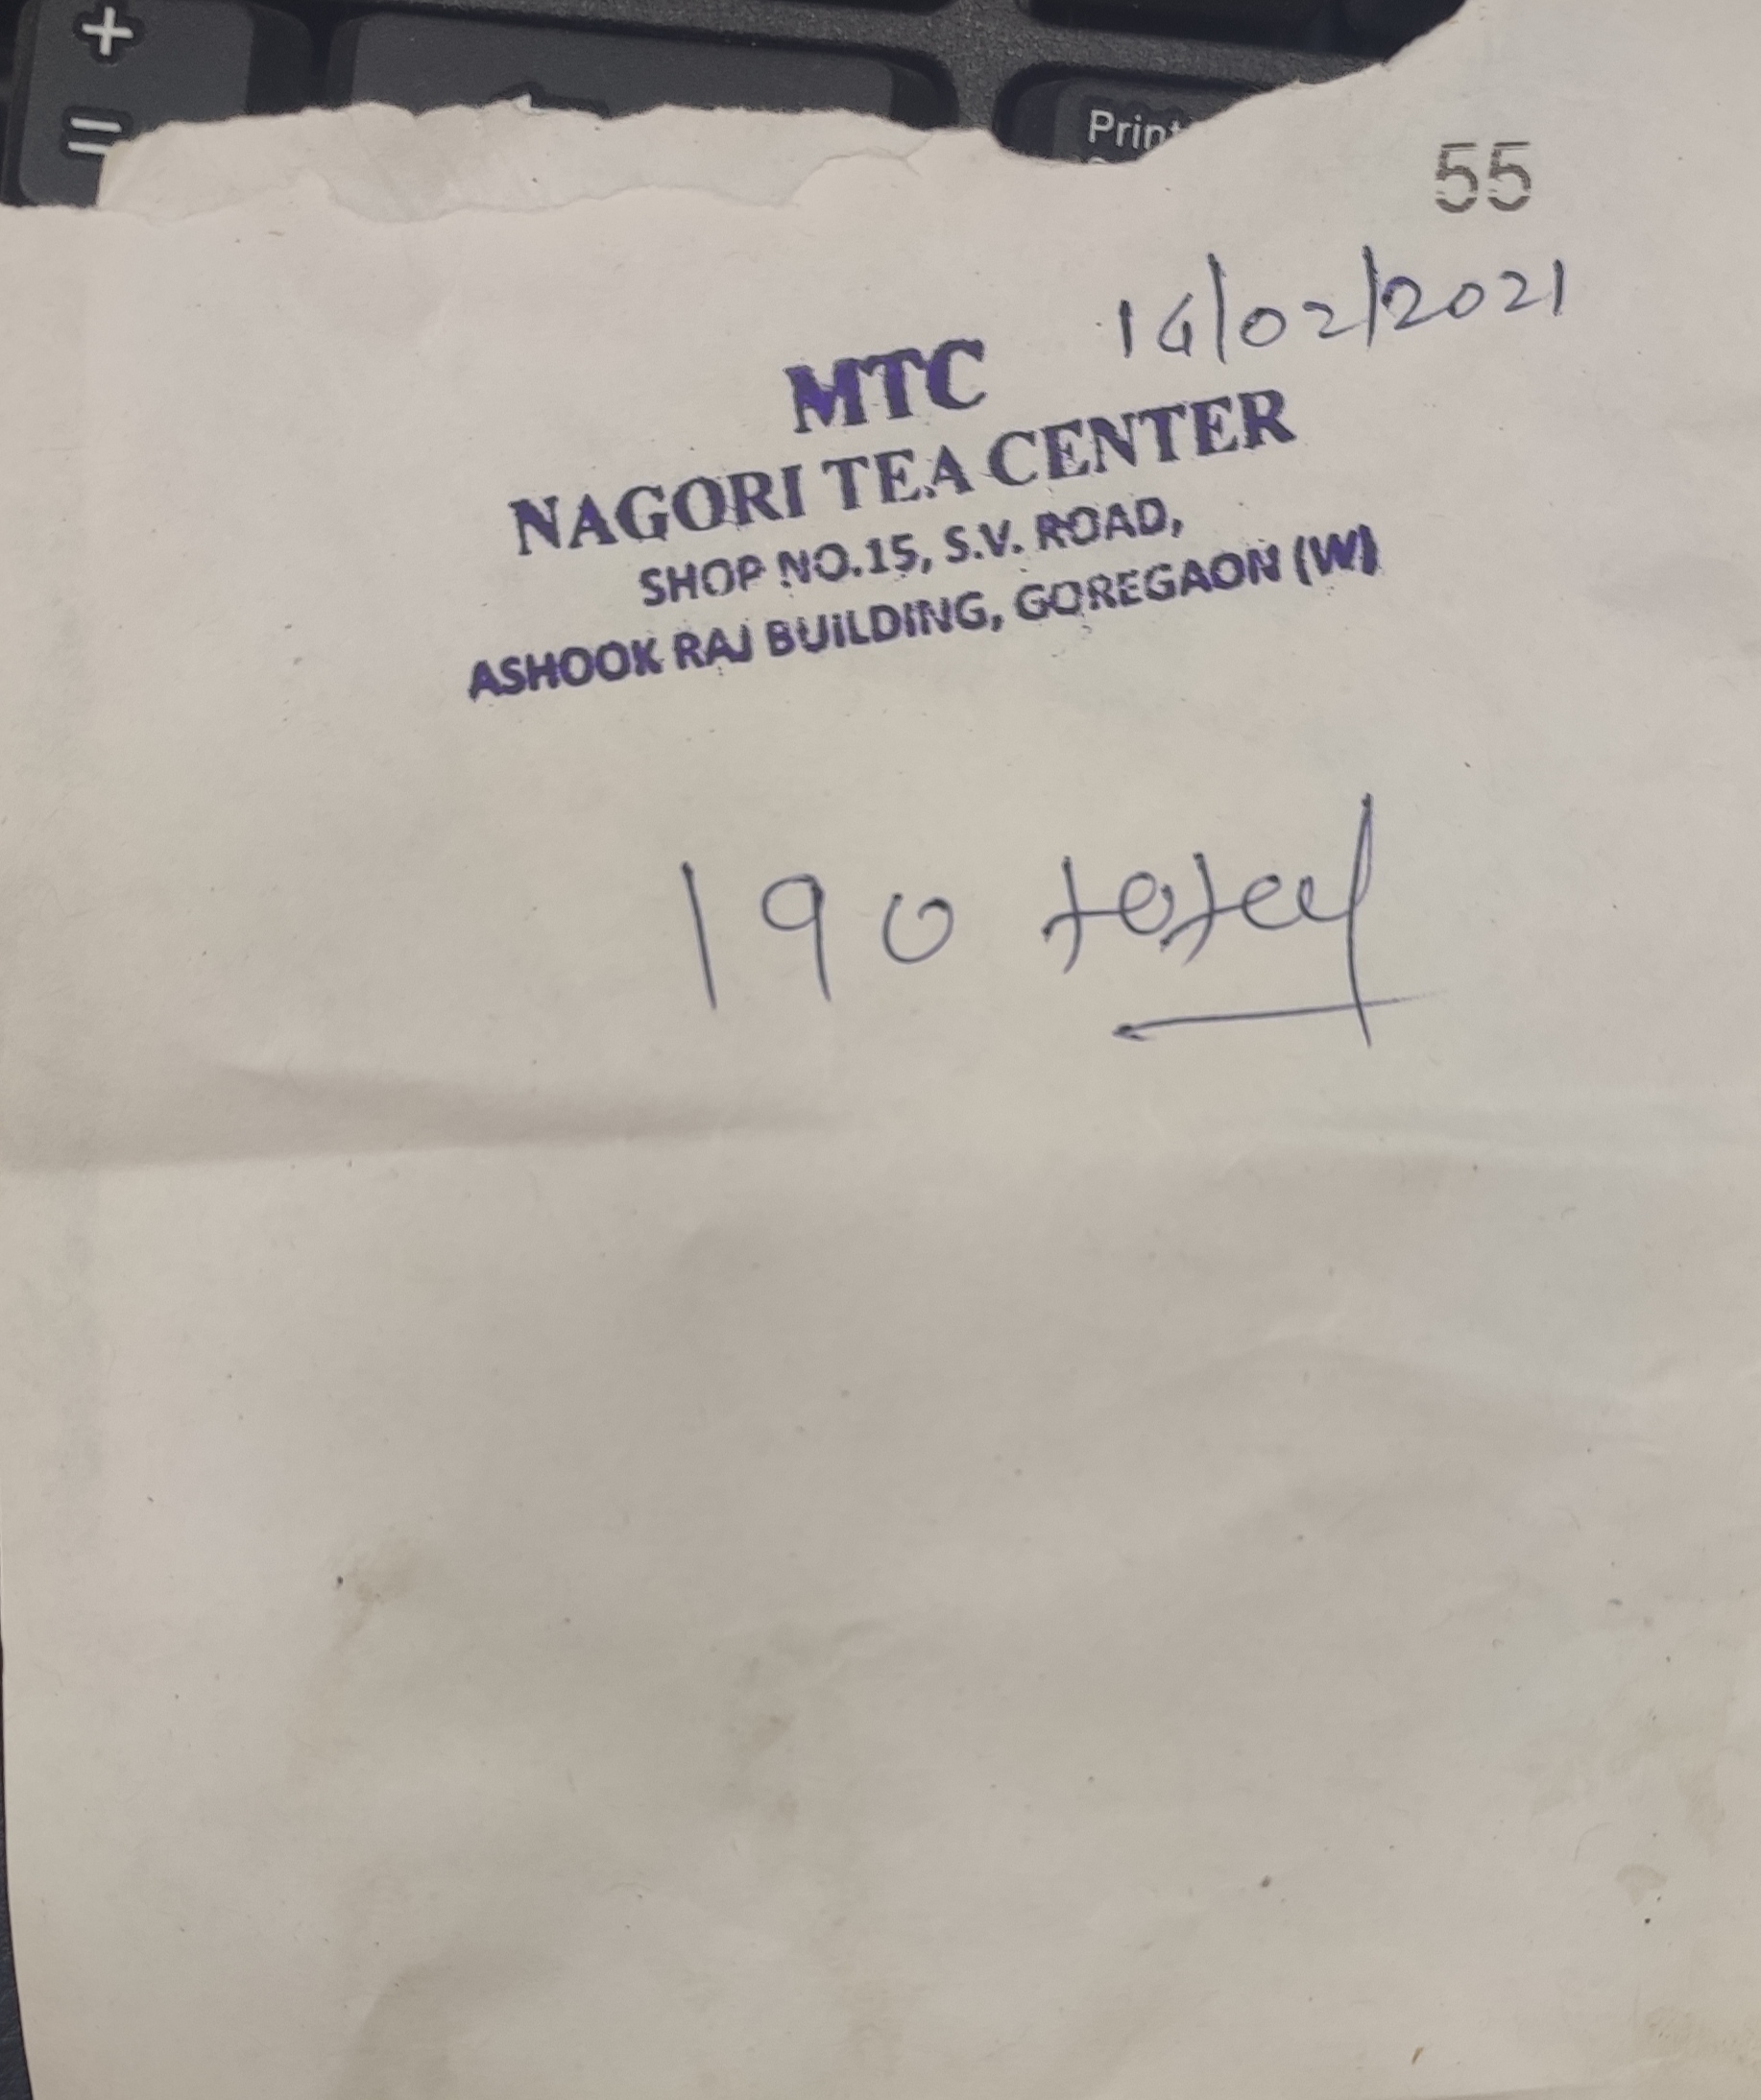 +
=
Print
55
14/02/2021
MTC
NAGORI TEA CENTER
SHOP NO.15, S.V. ROAD,
ASHOOK RAJ BUILDING, GOREGAON (W)
190 total